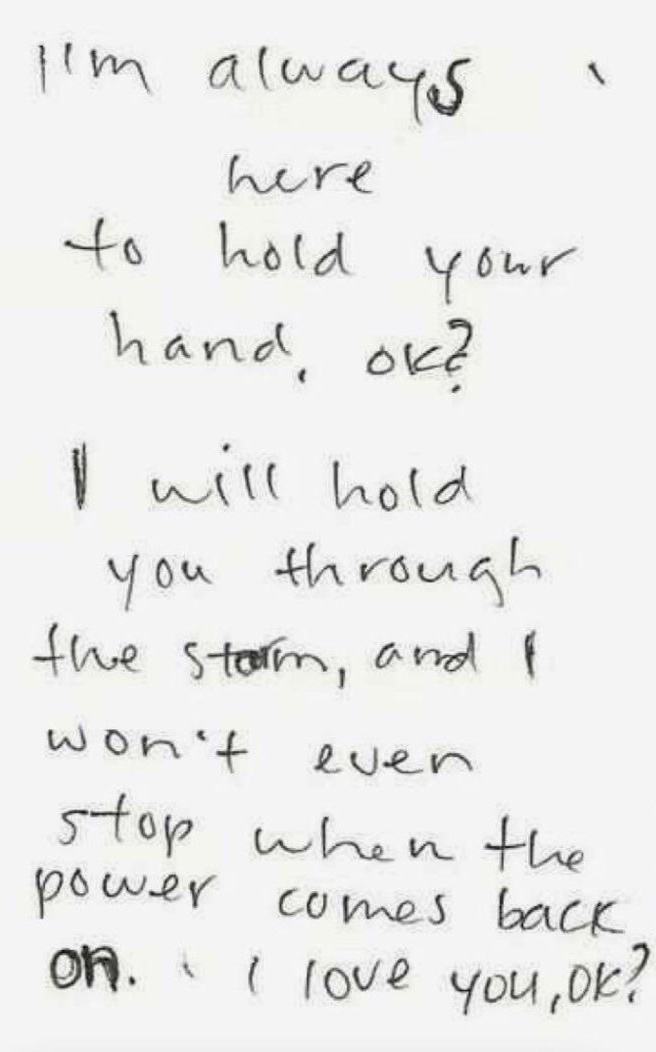 I'm always
here
to hold your
hand, ok?
I will hold
you through
the storm, and I
won't even
stop when the
power comes back
on. I love you, ok?